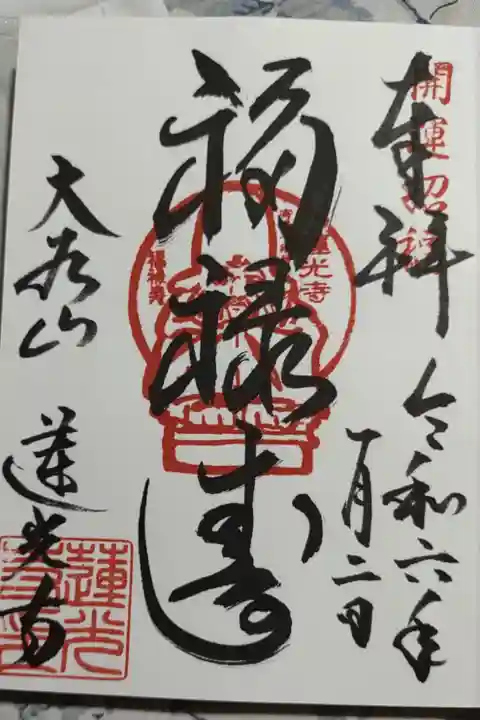 奉拝
開運招福
令和六年
一月二日
福禄寿
蓮光寺
福禄寿
大秀山
蓮光寺
蓮光